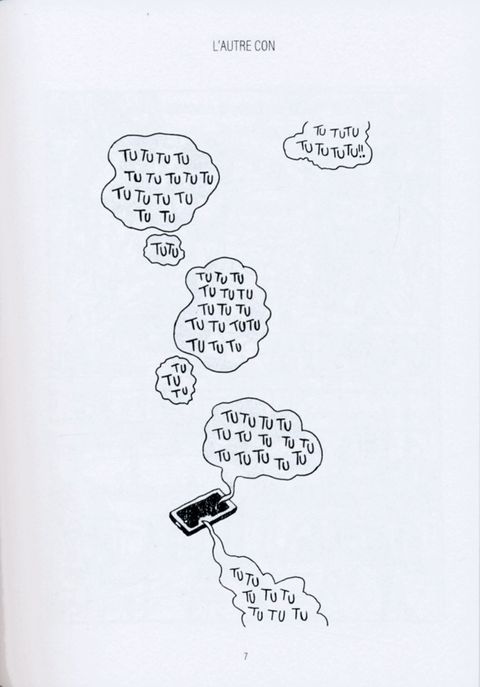 L'AUTRE CON
TU TUTU
TU TU TUTU!!
TU TU TU TU
TU TU TU TU TU
TU TU TU TU
TU TU
TUTU
TU TU TU
TU TU TU
TU TU TU
TU TU TUTU
TU TU TU
TU
TU
TU
TUTU TU TU
TU TU TU TU TU
TU TU TU TU TU
TU TU
TU TU TU
TU TU TU
7